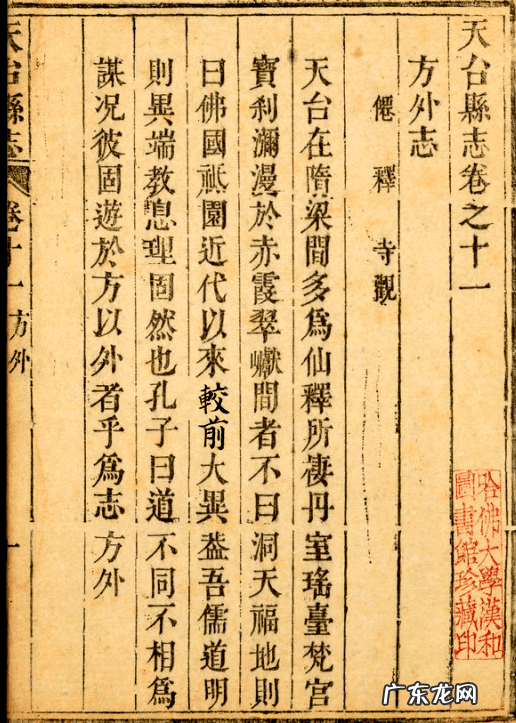 天台縣志卷之十一
方外志
僊釋 寺觀
天台在隋梁間多為仙釋所棲丹室瑤臺梵宮
寶刹瀰漫於赤霞翠巘間者不曰洞天福地則
曰佛國祇園近代以來較前大異葢吾儒道明
則異端教息理固然也孔子曰道不同不相為
謀况彼固遊於方以外者乎為志方外
天台縣志 卷十一 方外 一
哈佛大學漢和圖書館珍藏印
广东龙网